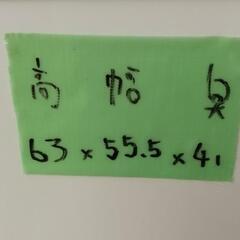 高 幅 奥
63 × 55.5 × 41